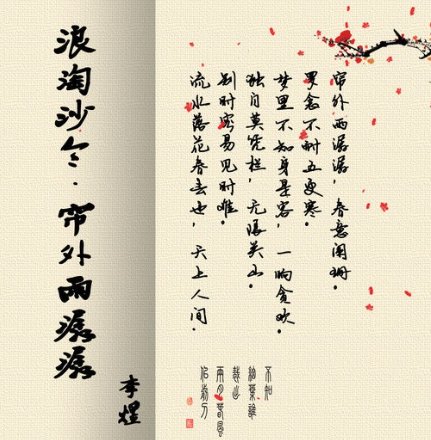 浪淘沙令·帘外雨潺潺
李煜
帘外雨潺潺，春意阑珊。
罗衾不耐五更寒。
梦里不知身是客，一晌贪欢。
独自莫凭栏，无限关山。
别时容易见时难。
流水落花春去也，天上人间.
不知
細葉誰
裁出
二月春風
似剪刀